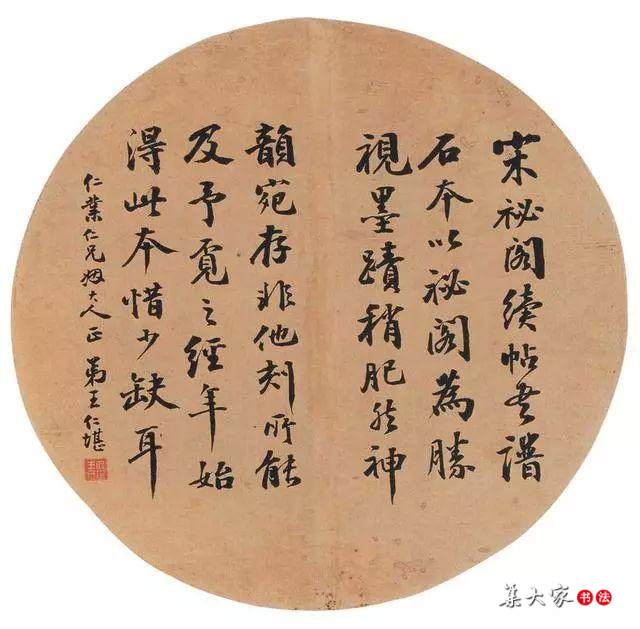 宋祕閣續帖書譜
石本以祕閣為勝
視墨蹟稍肥然神
韻宛存非他刻所能
及予覓之經年始
得此本惜少缺耳
仁葉仁兄姻大人正 弟王仁堪
集大家 书法